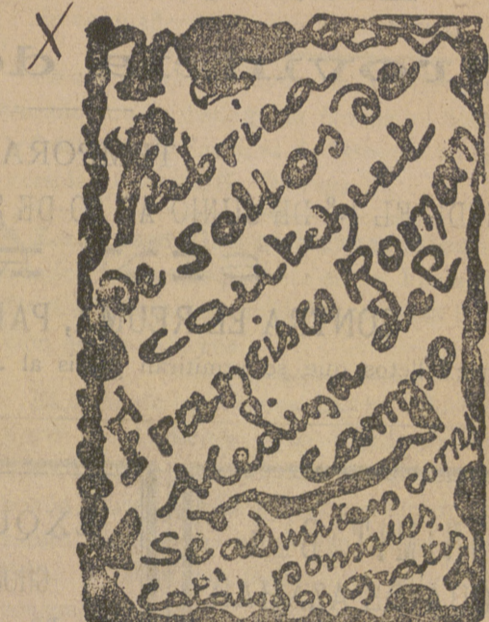 X
Fabrica de
de Sellos de
cautchuet
Francisco Roman
Medina del
campo
Se admiten corres
ponsales.
Catálogos gratis